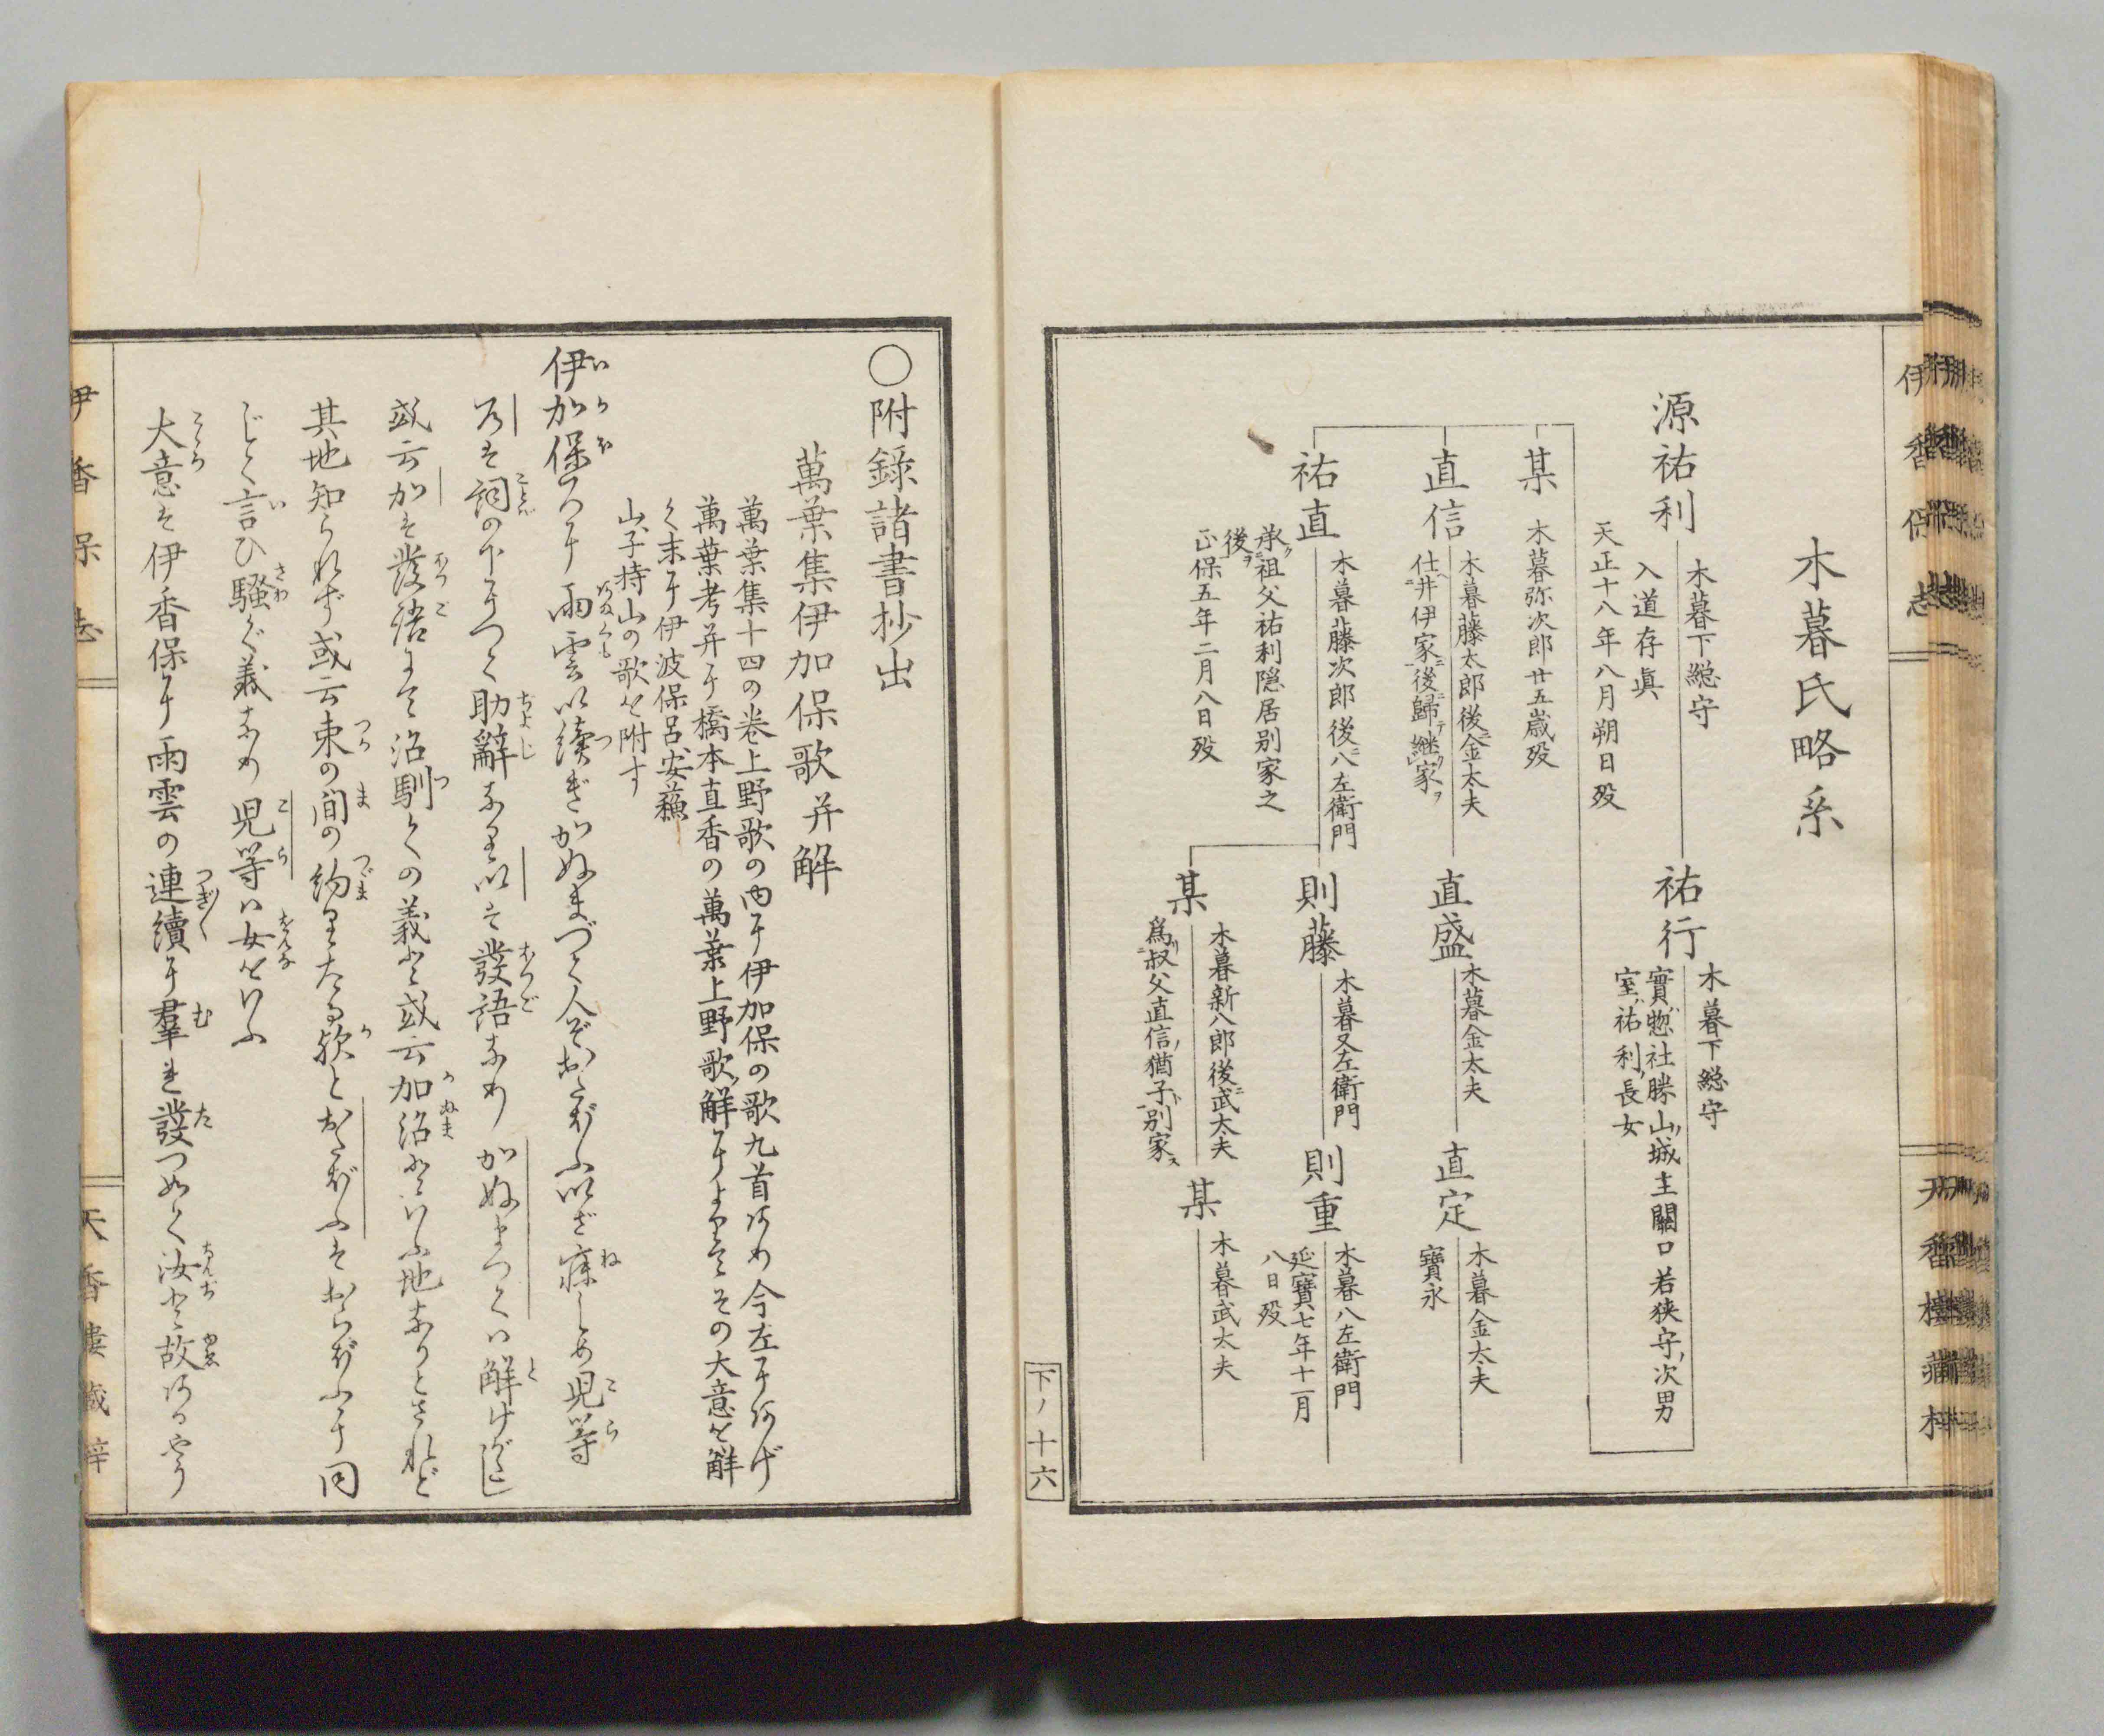 伊香保志
天香樓藏梓
木暮氏略系
源祐利
木暮下總守
入道存眞
天正十八年八月朔日歿
祐行
木暮下總守
實ハ惣社勝山ノ城主關口若狹守ノ次男
室ハ祐利ノ長女
某
木暮弥次郎廿五歳歿
直信
木暮藤太郎後ニ金太夫
仕ヘ井伊家ニ後歸テ継ク家ヲ
直盛
木暮金太夫
直定
木暮金太夫
寶永
祐直
木暮藤次郎後ニ八左衛門
承ク祖父祐利隠居別家之
後ヲ
正保五年二月八日歿
則藤
木暮又左衛門
則重
木暮八左衛門
延寶七年十一月
八日歿
某
木暮新八郎後ニ武太夫
爲リ叔父直信ノ猶子ト別家ス
某
木暮武太夫
下ノ十六
○附錄諸書抄出
萬葉集伊加保歌并解
萬葉集十四の巻上野歌の内に伊加保の歌九首あり今左にあげ
萬葉考并に橋本直香の萬葉上野歌ノ解によりてその大意を解
く末に伊波保呂安蘓
山子持山の歌を附す
伊加保ろに雨雲い續ぎかぬまづく人ぞおたばふいざ寐しめ兒等
ろは詞の下につく助辭なりいは發語なり かぬまつくハ解けがたし
或云かは發語にて沼馴くの義と或云加沼といふ地ありとされど
其地知られず或云束の間の約りたる歟とおたばふはおらばふに同
じく言ひ騷ぐ義なり 兒等ハ女をいふ
大意は伊香保に雨雲の連續に羣れ發つ如く汝と故あるやう
伊香保志
天香樓藏梓